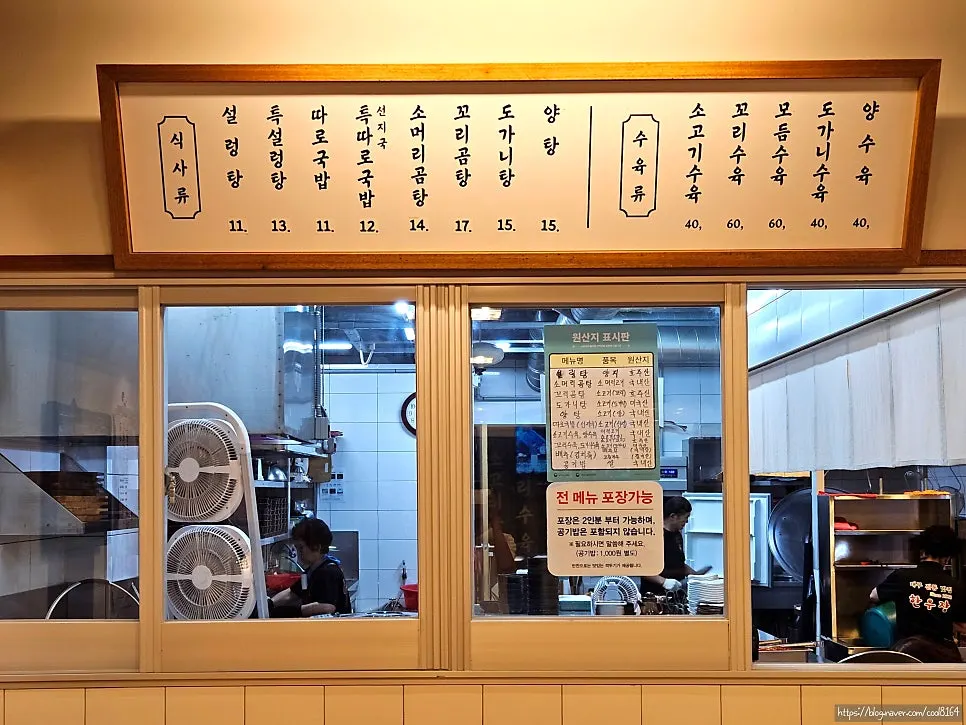 식사류
설렁탕
11.
특설렁탕
13.
따로국밥
11.
선지국
특따로국밥
12.
소머리곰탕
14.
꼬리곰탕
17.
도가니탕
15.
양탕
15.
수육류
소고기수육
40,
꼬리수육
60,
모듬수육
60,
도가니수육
40,
양수육
40,
원산지 표시판
메뉴명 품목 원산지
소머리곰탕 소머리고기 국내산
꼬리곰탕 소고기(꼬리) 호주산
도가니탕 미국산
양탕 국내산
공기밥 쌀 국내산
전 메뉴 포장가능
포장은 2인분 부터 가능하며,
공기밥은 포함되지 않습니다.
※ 필요하시면 말씀해 주세요.
(공기밥 : 1,000원 별도)
한우장
https://blog.naver.com/cool8164